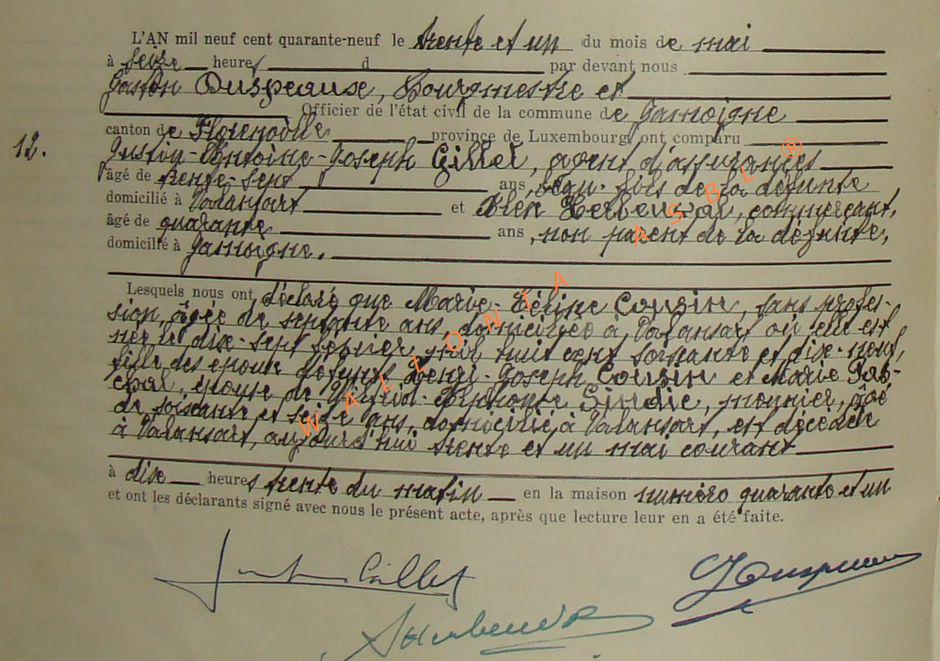 L'AN mil neuf cent quarante-neuf le trente et un du mois de mai
à seize heures d par devant nous
Gaston Duspeaux, Bourgmestre et
Officier de l'état civil de la commune de Jamoigne
canton de Florenville province de Luxembourg ont comparu
12. Justin-Antoine-Joseph Gillet, agent d'assurances
âgé de trente-sept ans, beau-fils de la défunte
domicilié à Valansart et Alex Herbeuval, commerçant,
âgé de quarante ans, non parent de la défunte,
domicilié à Jamoigne.
Lesquels nous ont déclaré que Marie-Céline Cousin, sans profes-
sion, âgée de septante ans, domiciliée à Valansart où elle est
née le dix-sept février mil huit cent soixante et dix-neuf,
fille des époux défunts Henri-Joseph Cousin et Marie
épouse de Alphonse meunier, âgé
de soixante et seize ans, domicilié à Valansart, est décédée
à Valansart, aujourd'hui trente et un mai courant
à dix heures trente du matin en la maison numéro quarante et un
et ont les déclarants signé avec nous le présent acte, après que lecture leur en a été faite.
WALLONIA ASBL ®